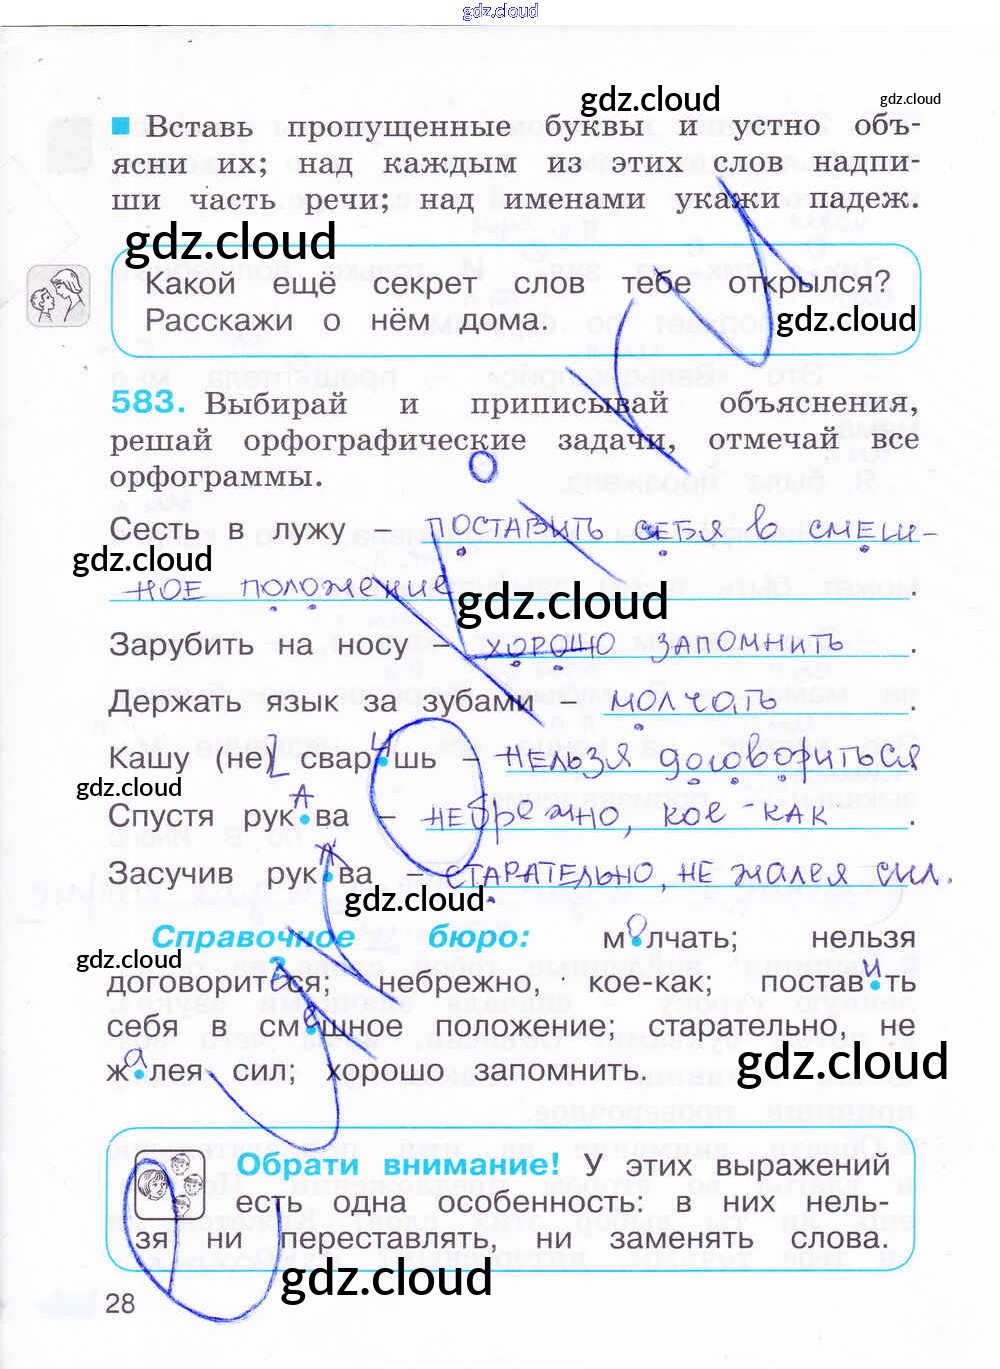 gdz.cloud
gdz.cloud
gdz.cloud
Вставь пропущенные буквы и устно объ-
ясни их; над каждым из этих слов надпи-
ши часть речи; над именами укажи падеж.
gdz.cloud
Какой ещё секрет слов тебе открылся?
Расскажи о нём дома.
gdz.cloud
583. Выбирай и приписывай объяснения,
решай орфографические задачи, отмечай все
орфограммы.
Сесть в лужу – поставить себя в смеш-
gdz.cloud
ное положение.
gdz.cloud
Зарубить на носу – хорошо запомнить.
Держать язык за зубами – молчать.
Кашу (не) свар и шь – нельзя договориться
gdz.cloud
Спустя рук а ва – небрежно, кое-как.
Засучив рук а ва – старательно, не жалея сил.
gdz.cloud
Справочное бюро: м о лчать; нельзя
gdz.cloud
договорит ь ся; небрежно, кое-как; постав и ть
себя в см е шное положение; старательно, не
ж а лея сил; хорошо запомнить.
gdz.cloud
Обрати внимание! У этих выражений
есть одна особенность: в них нель-
зя ни переставлять, ни заменять слова.
gdz.cloud
28